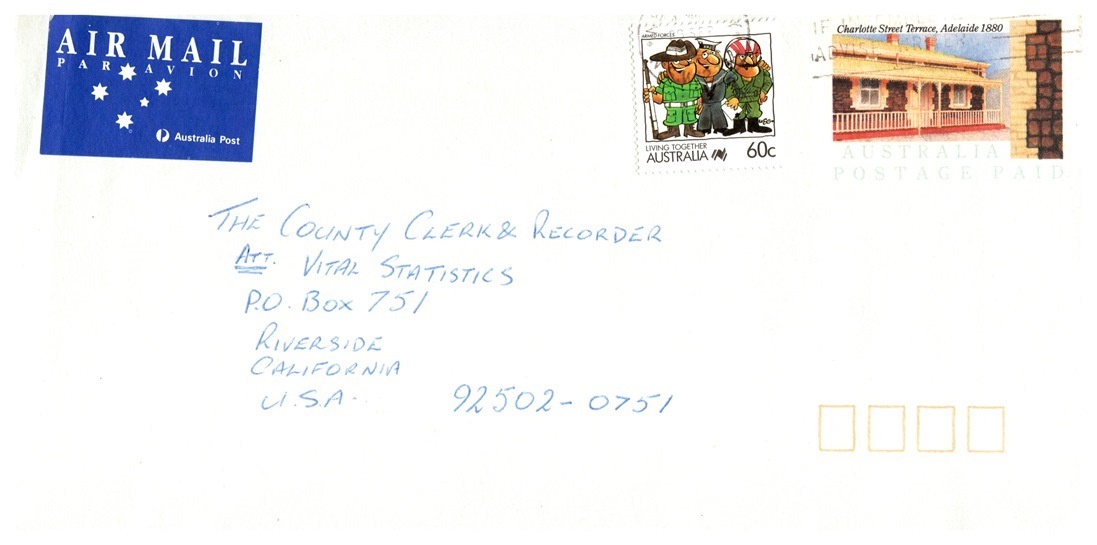 AIR MAIL
PAR AVION
Australia Post
ARMED FORCES
LIVING TOGETHER
AUSTRALIA 60c
IF
Charlotte Street Terrace, Adelaide 1880
AUSTRALIA
POSTAGE PAID
THE COUNTY CLERK & RECORDER
ATT. VITAL STATISTICS
P.O. BOX 751
RIVERSIDE
CALIFORNIA
U.S.A. 92502-0751